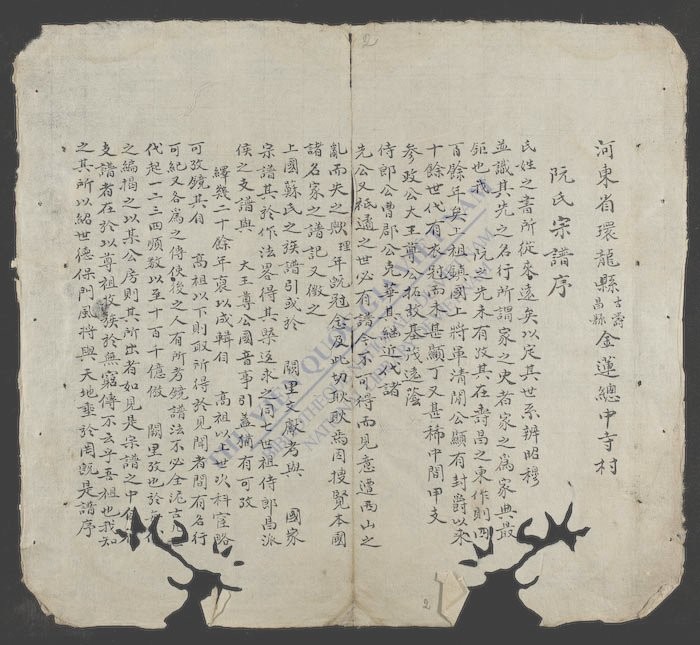 河東省環龍縣古壽昌縣金蓮總中寺村
阮氏宗譜序
氏姓之書所從來遠矣以定其世系辨昭穆
並識其先之名行所謂家之史者家之為家典最
鉅也哉 阮之先未有攷其在壽昌之東作則四
百餘年矣上祖鎮國上將軍清閒公顯有封爵以來
十餘世代有衣冠而未甚顯丁又甚稀中間甲支
參政公大王尊公拓故基茂遠蔭
侍郎公曹郡公克華其繼近代諸
先公又秪遹之世必有譜今不可得而見意遭西山之
亂而失之歟理年既冠念及此切耿耿焉因搜覽本國
諸名家之譜記又倣之
上國蘇氏之族譜引或於 闕里文獻考與 國家
宗譜其於作法畧得其槩返求之同七世祖侍郎昌派
侯之支譜與 大王尊公國音事引蓋猶有可攷
繹幾二十餘年裒以成輯自 高祖以上世次科宦略
可攷鏡其自 高祖以下則取所得於見聞者間有名行
可紀又各為之傳使後之人有所考鏡譜法不必全泥古
代起一二三四順數以至十百千億倣 闕里攷也於
之編揭之以某公房則其所出者如見是宗譜之中
支譜者在於以尊祖收族於無窮傳不云乎吾祖也我知
之其所以紹世德保門風將與天地垂於罔既是譜序
2
2
DIỆN QUỐC GIA VIỆT NAM
NATIONAL LIBRARY OF VIETNAM